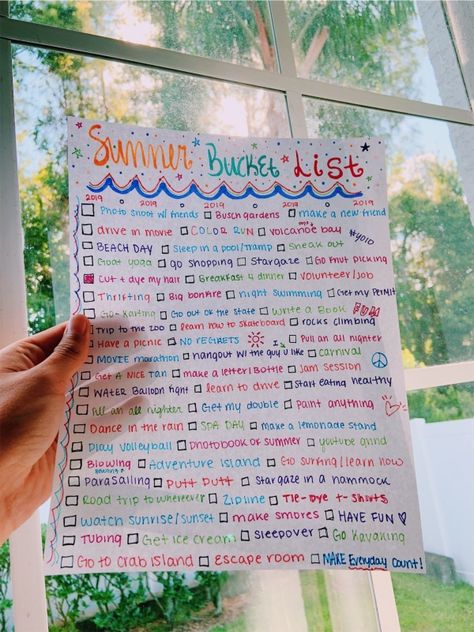 Summer Bucket List
2019 2019 2019 2019 2019 2019
Photo shoot w/ friends Busch gardens make a new friend
drive in movie COLOR RUN volcanoe bay
BEACH DAY Sleep in a pool/tramp Sneak out #yolo
Goat yoga go shopping Stargaze Go fruit picking
Cut + dye my hair Breakfast 4 dinner Volunteer/job
Thrifting Big bonfire night swimming Get my permit
Go-Karting Go out of the state Write a Book FUN
Trip to the zoo learn how to skateboard rocks climbing
Have a picnic NO REGRETS Pull an all nighter
MOVIE marathon hangout w/ the guy u like carnival
Get A NICE tan make a letter in Bottle Jam session
WATER Balloon fight learn to drive Start eating healthy
Pull an all nighter Get my double Paint anything
Dance in the rain SPA DAY make a lemonade stand
Play volleyball photobook of summer youtube grind
Blowing Adventure island Go surfing/learn how
ParaSailing Putt Putt Stargaze in a hammock
Road trip to wherever Zipline Tie-Dye t-Shirts
Watch sunrise/sunset make smores HAVE FUN
Tubing Get ice cream sleepover Go Kayaking
Go to Crab island escape room MAKE Everyday Count!